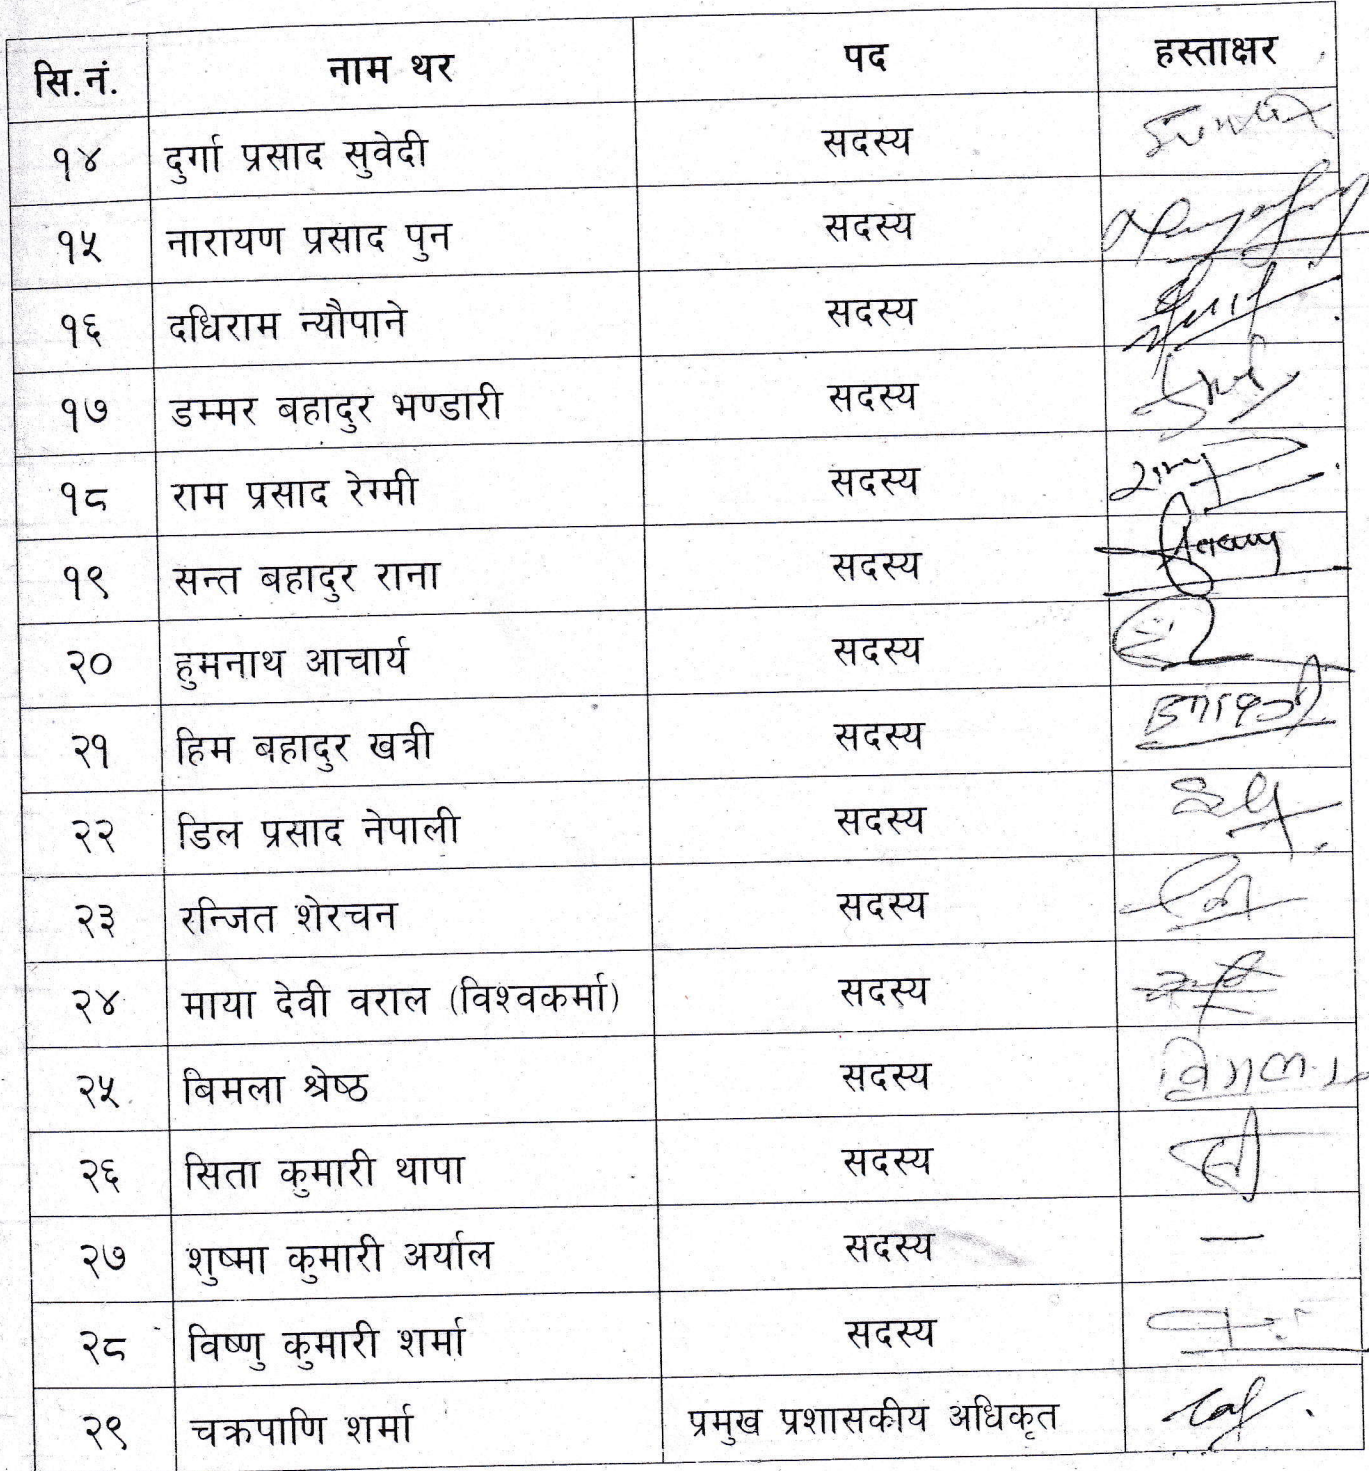 सि.नं. नाम थर पद हस्ताक्षर
१४ दुर्गा प्रसाद सुवेदी सदस्य
१५ नारायण प्रसाद पुन सदस्य
१६ दधिराम न्यौपाने सदस्य
१७ डम्मर बहादुर भण्डारी सदस्य
१८ राम प्रसाद रेग्मी सदस्य
१९ सन्त बहादुर राना सदस्य
२० हुमनाथ आचार्य सदस्य
२१ हिम बहादुर खत्री सदस्य
२२ डिल प्रसाद नेपाली सदस्य
२३ रन्जित शेरचन सदस्य
२४ माया देवी वराल (विश्वकर्मा) सदस्य
२५ बिमला श्रेष्ठ सदस्य
२६ सिता कुमारी थापा सदस्य
२७ शुष्मा कुमारी अर्याल सदस्य —
२८ विष्णु कुमारी शर्मा सदस्य
२९ चक्रपाणि शर्मा प्रमुख प्रशासकीय अधिकृत